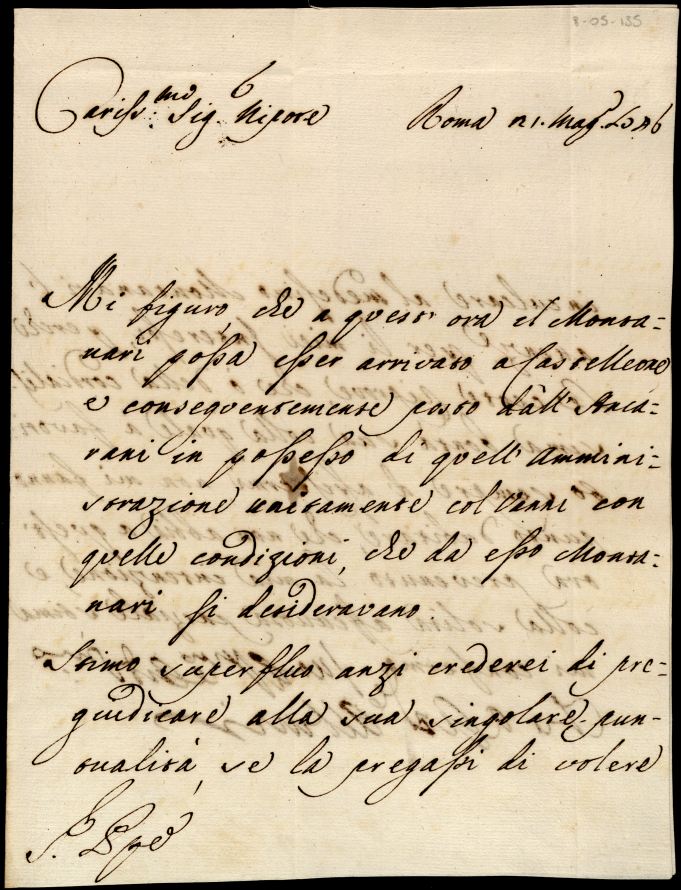 8-05-135
Cariss.mo Sig. Nipote Roma 21. Mag.
Mi figuro, che a quest' ora il Monta=
nari possa esser arrivato a Castelleone
e conseguentemente posto dall' Anca=
rani in possesso di quell' Ammini=
strazione unitamente col Vanni con
quelle condizioni, che da esso Monta=
nari si desideravano.
Stimo superfluo anzi crederei di pre=
giudicare alla sua singolare pun=
tualità, se la pregassi di volere